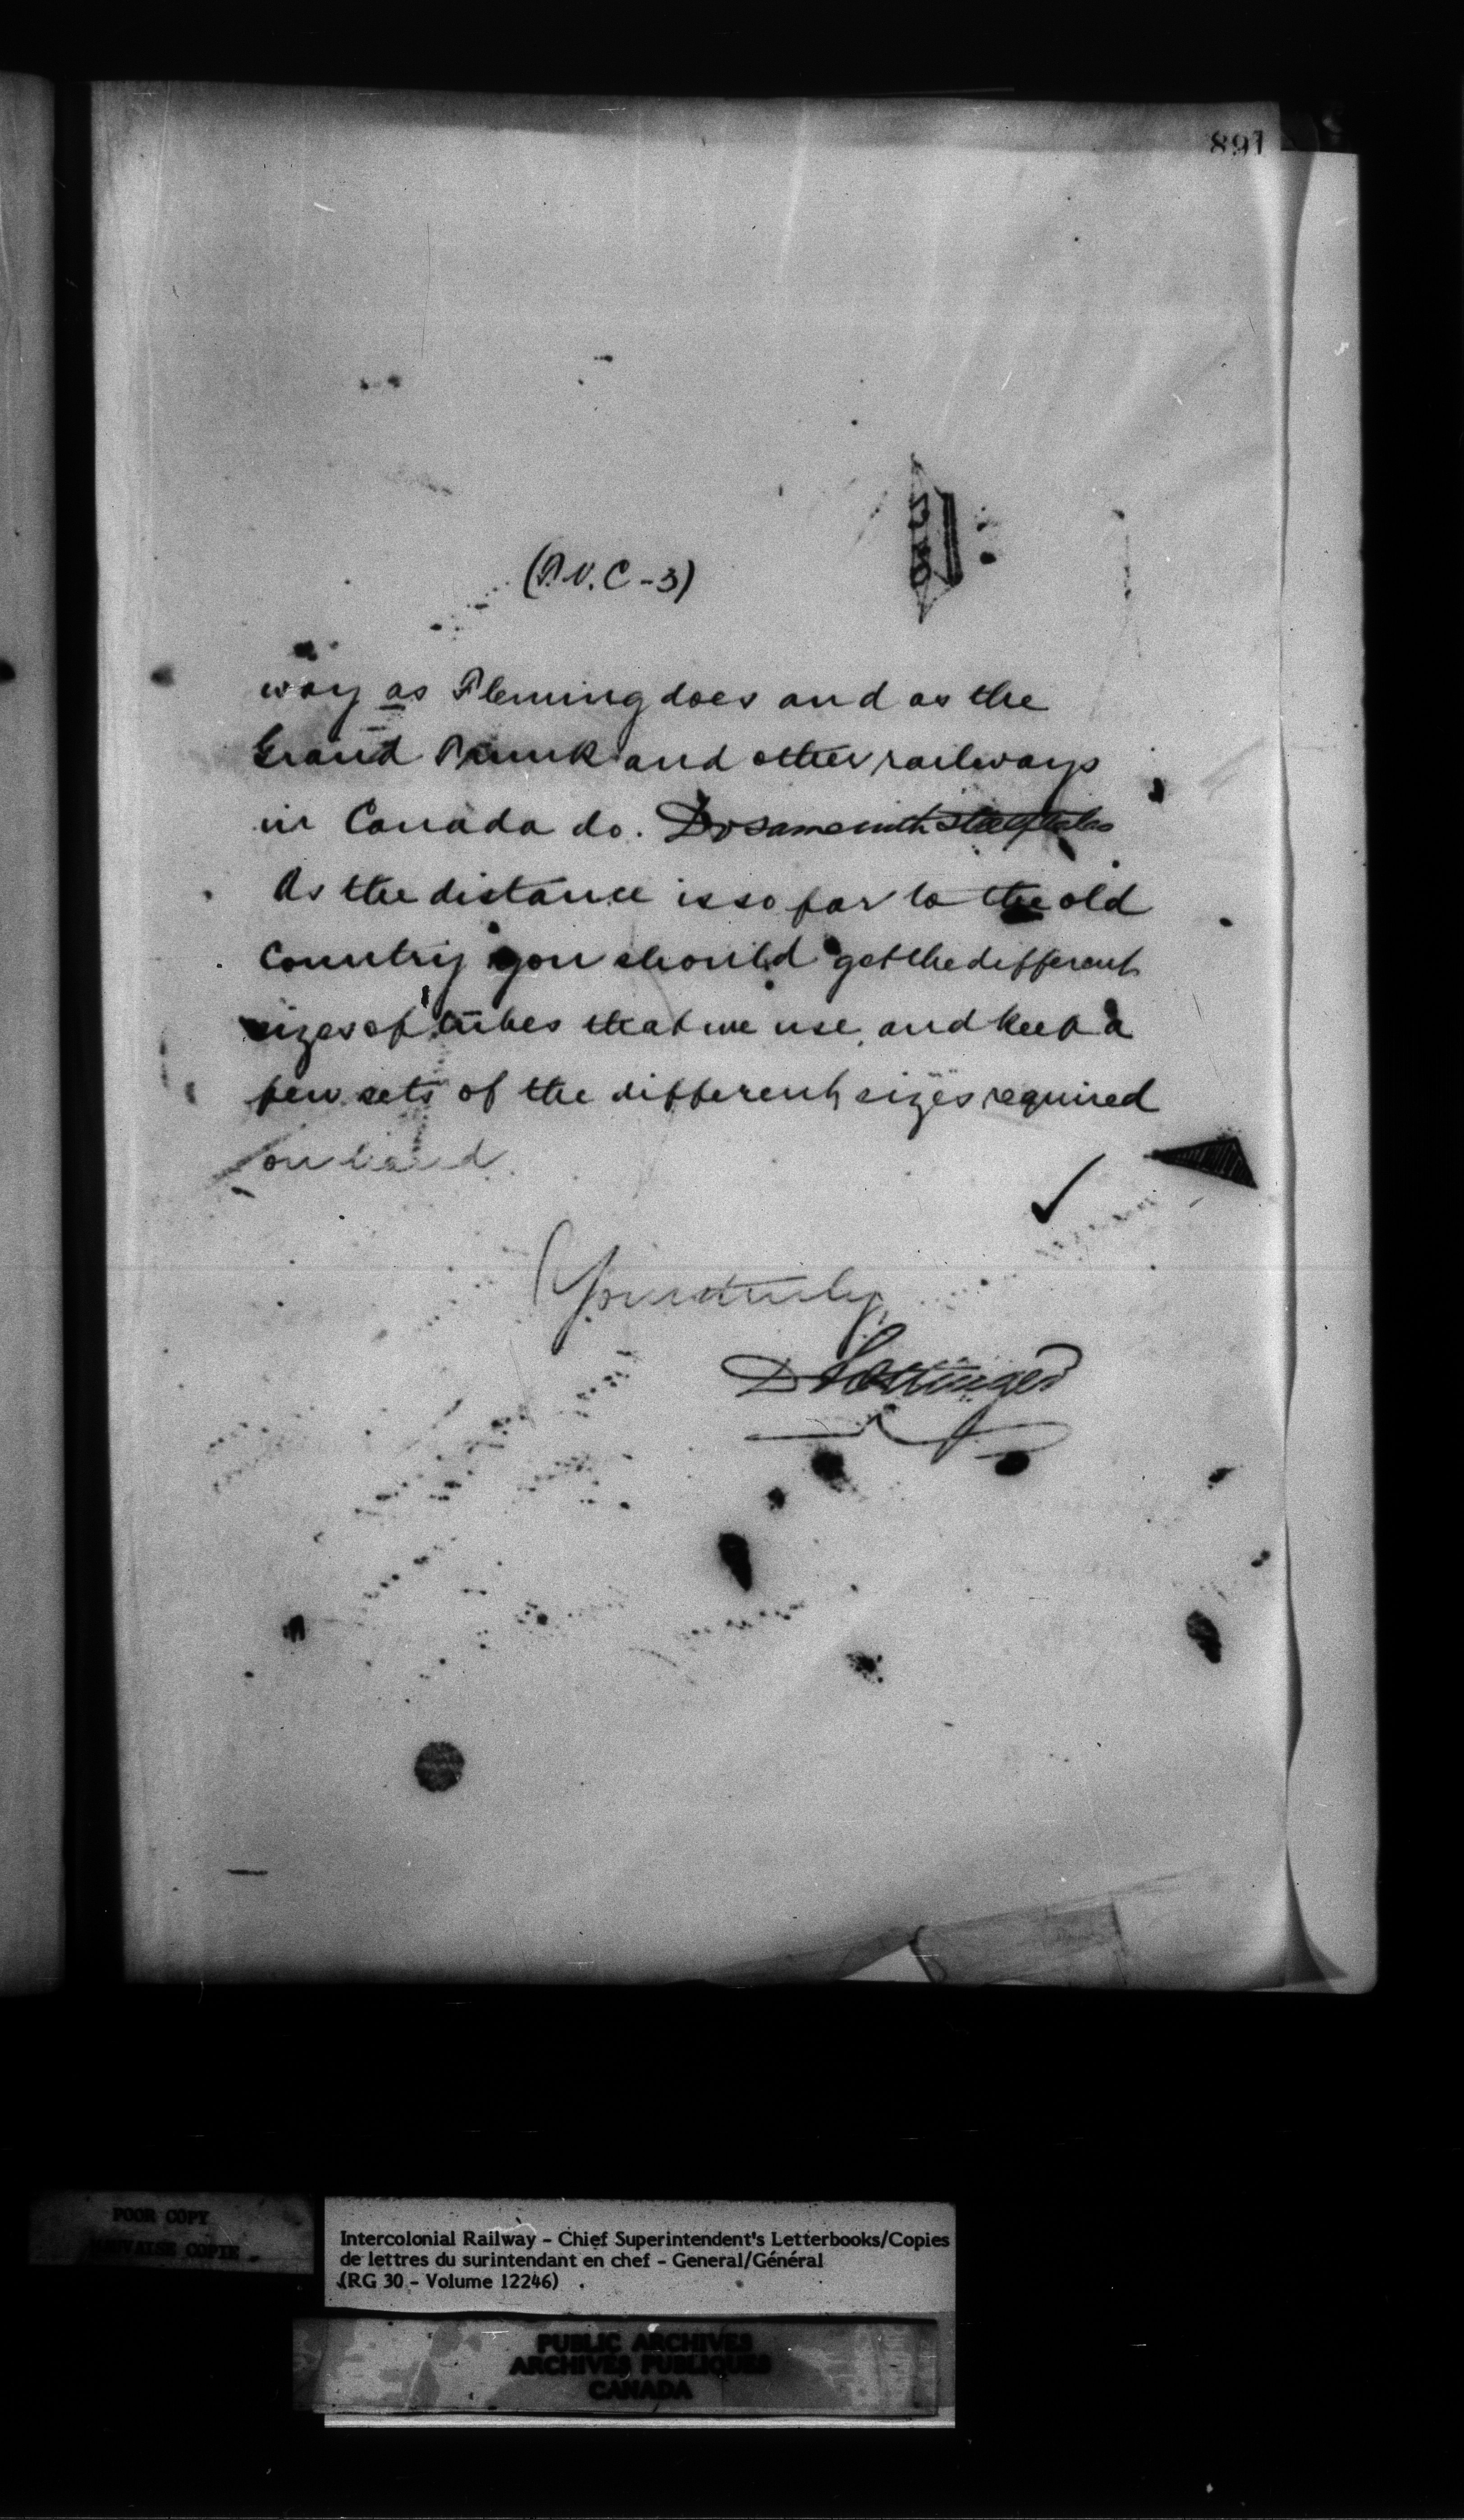 891
(P.V.C-3)
way as Fleming does and as the
Grand Trunk and other railways
in Canada do. Do same with steel tubes
As the distance is so far to the old
Country you should get the different
sizes of tubes that we use, and keep a
few sets of the different sizes required
on hand.
Yours truly
D Pottinger
POOR COPY
MAUVAISE COPIE
Intercolonial Railway - Chief Superintendent's Letterbooks/Copies
de lettres du surintendant en chef - General/Général
(RG 30 - Volume 12246)
PUBLIC ARCHIVES
ARCHIVES PUBLIQUES
CANADA